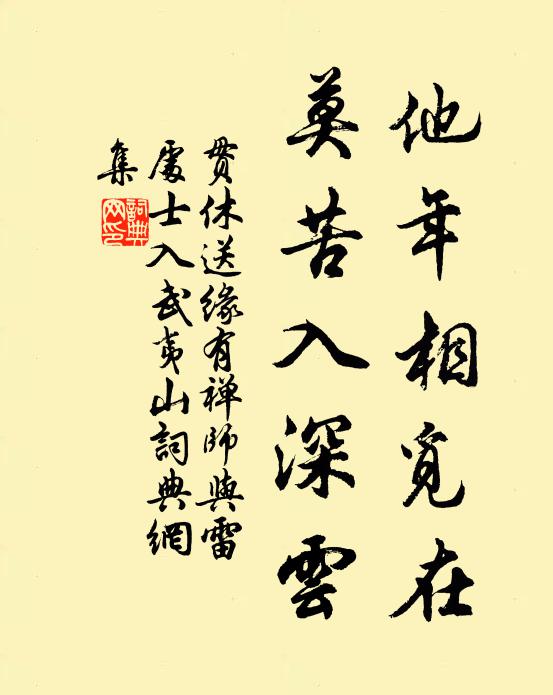 他年相覓在
莫苦入深雲
貫休送緣有禅師與雷
處士入武夷山詞典網
集
詞典
网印